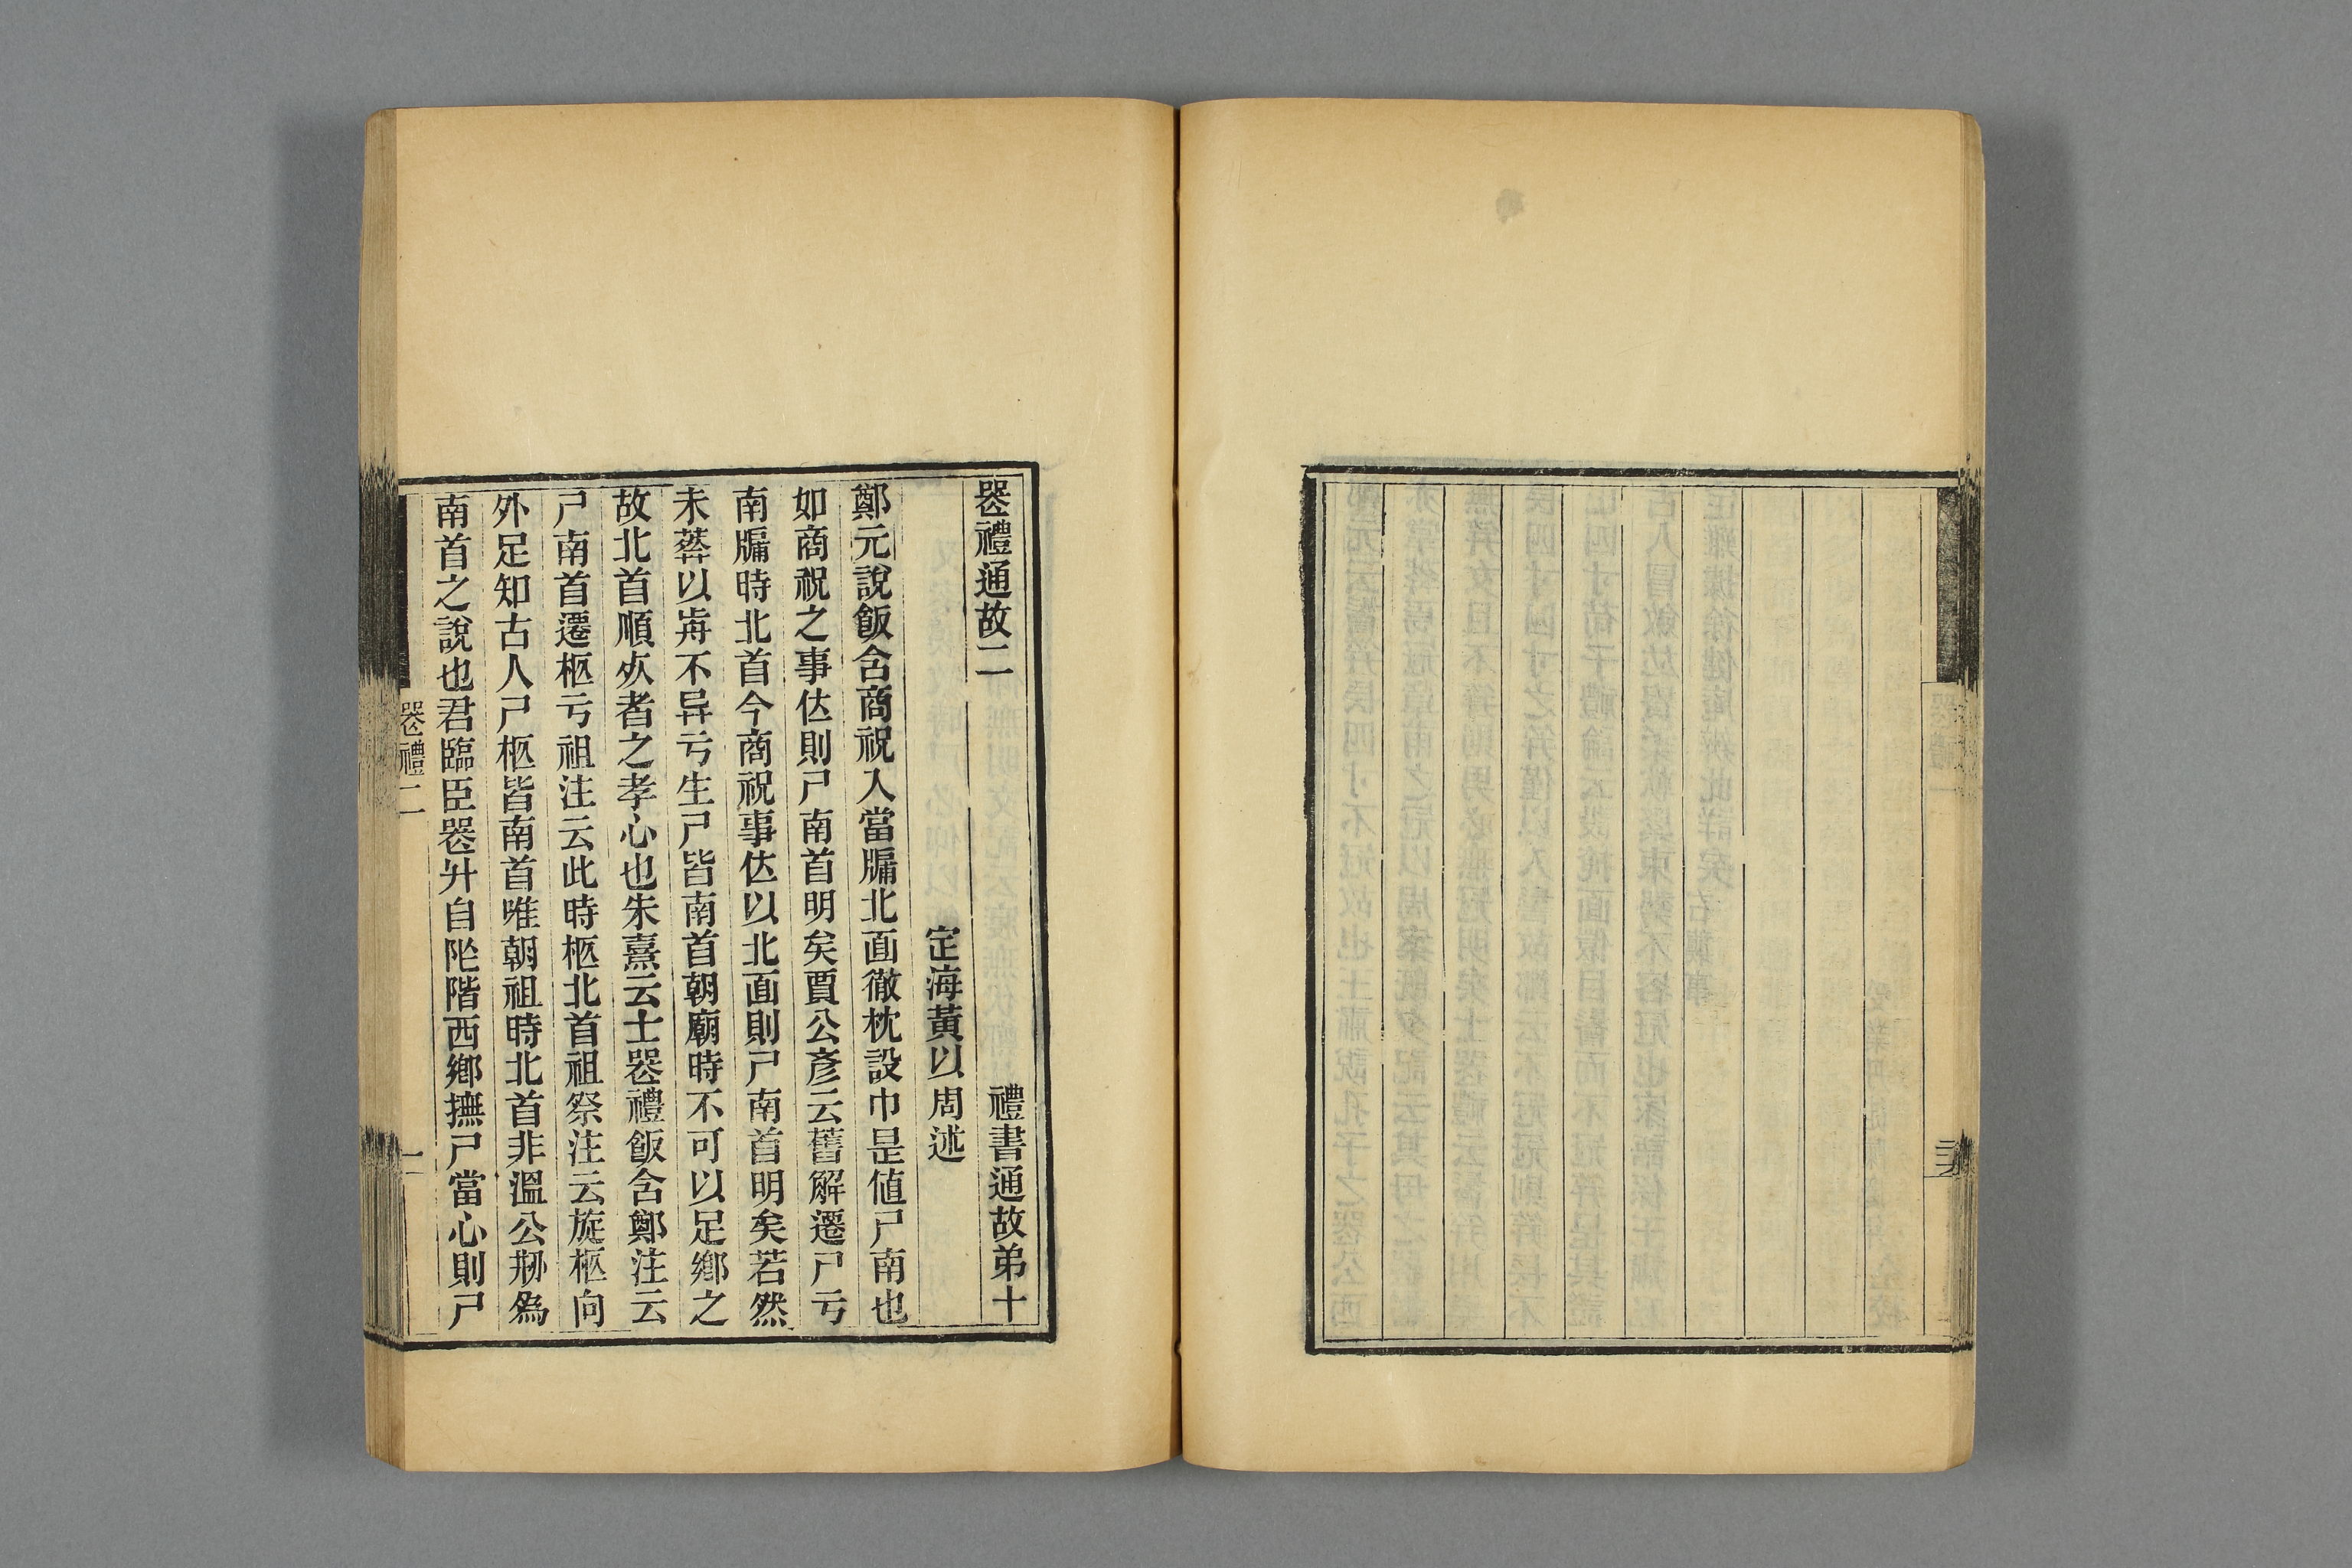 喪禮通故二
禮書通故弟十
定海黃以周述
鄭元說飯含商祝入當牖北面徹枕設巾是値尸南也
如商祝之事位則尸南首明矣賈公彥云舊解遷尸亏
南牖時北首今商祝事位以北面則尸南首明矣若然
未葬以前不異亏生尸皆南首朝廟時不可以足鄉之
故北首順死者之孝心也朱熹云士喪禮飯含鄭注云
尸南首遷柩亏祖注云此時柩北首祖祭注云旋柩向
外足知古人尸柩皆南首唯朝祖時北首非溫公剏爲
南首之說也君臨臣喪升自阼階西鄉撫尸當心則尸
喪禮二
一